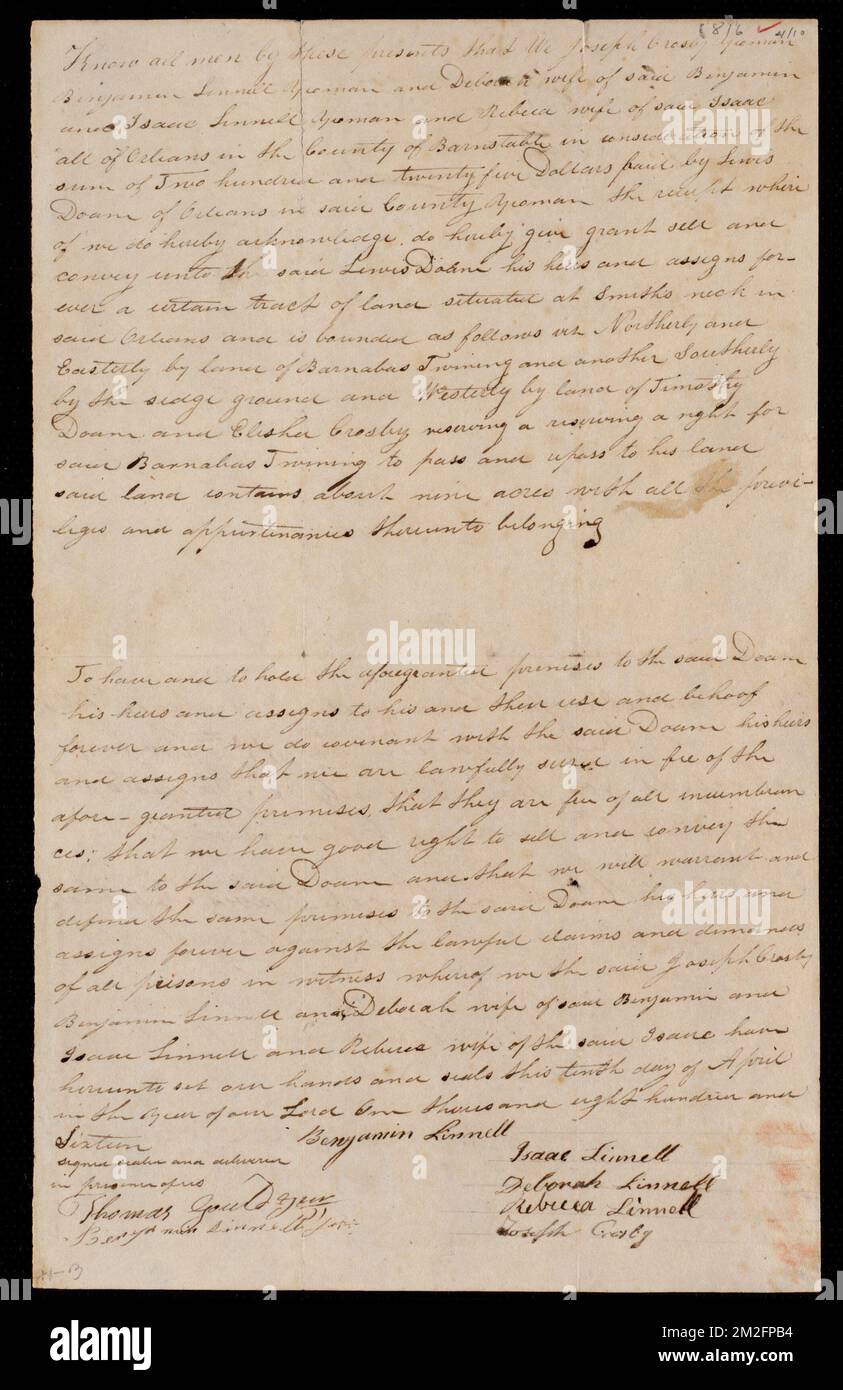 1816 4/10
Know all men by these presents that We Joseph Crosby Yeoman
Benjamin Linnell Yeoman and Deborah wife of said Benjamin
and Isaac Linnell Yeoman and Rebeca wife of said Isaac
all of Orleans in the County of Barnstable in consideration of the
sum of Two hundred and twenty five Dollars paid by Lewis
Doane of Orleans in said County Yeoman the receipt where
of we do hereby acknowledge, do hereby give grant sell and
convey unto the said Lewis Doane his heirs and assigns for-
ever a certain tract of land situated at Smiths neck in
said Orleans and is bounded as follows viz Northerly and
Easterly by land of Barnabas Twining and another Southerly
by the sedge ground and Westerly by land of Timothy
Doane and Elisher Crosby reserving a reserving a right for
said Barnabas Twining to pass and repass to his land
said land contains about nine acres with all the previ-
liges and appurtinancies thereunto belonging
To have and to hold the aforegranted premises to the said Doane
his heirs and assigns to his and their use and behoof
forever and we do covenant with the said Doane his heirs
and assigns that we are lawfully seized in fee of the
afore-granted premises, that they are free of all incumbran
ces; that we have good right to sell and convey the
same to the said Doane and that we will warrant and
defend the same premises to the said Doane his heirs and
assigns forever against the lawful claims and demands
of all persons in witness whereof we the said Joseph Crosby
Benjamin Linnell and Deborah wife of said Benjamin and
Isaac Linnell and Rebecca wife of the said Isaac have
hereunto set our hands and seals this tenth day of April
in the year of our Lord One thousand eight hundred and
Sixteen
Benjamin Linnell
signed sealed and delivered
in presence of us
Isaac Linnell
Deborah Linnell
Thomas Gould
Rebecca Linnell
Benjamin Linnell
Joseph Crosby
alamy
Image ID: 2M2FPB4
www.alamy.com